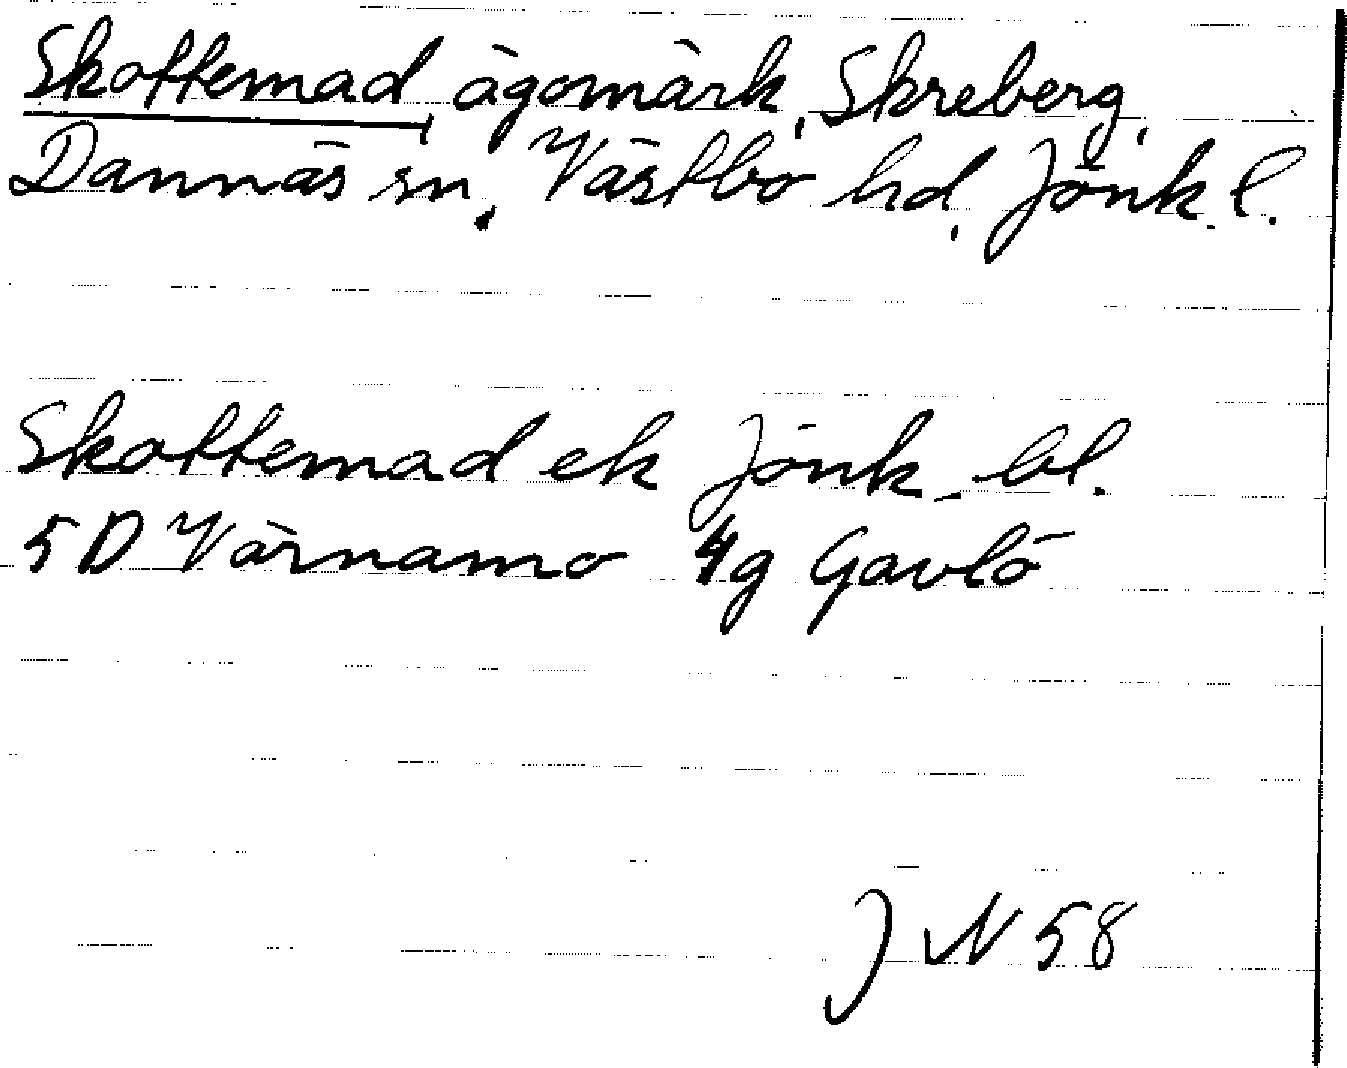 Skottemad, ägomärk, Skreberg,
Dannäs sn, Västbo hd, Jönk. l.
Skottemad ek Jönk. bl.
5D Värnamo 4g Gavlö
J N 58